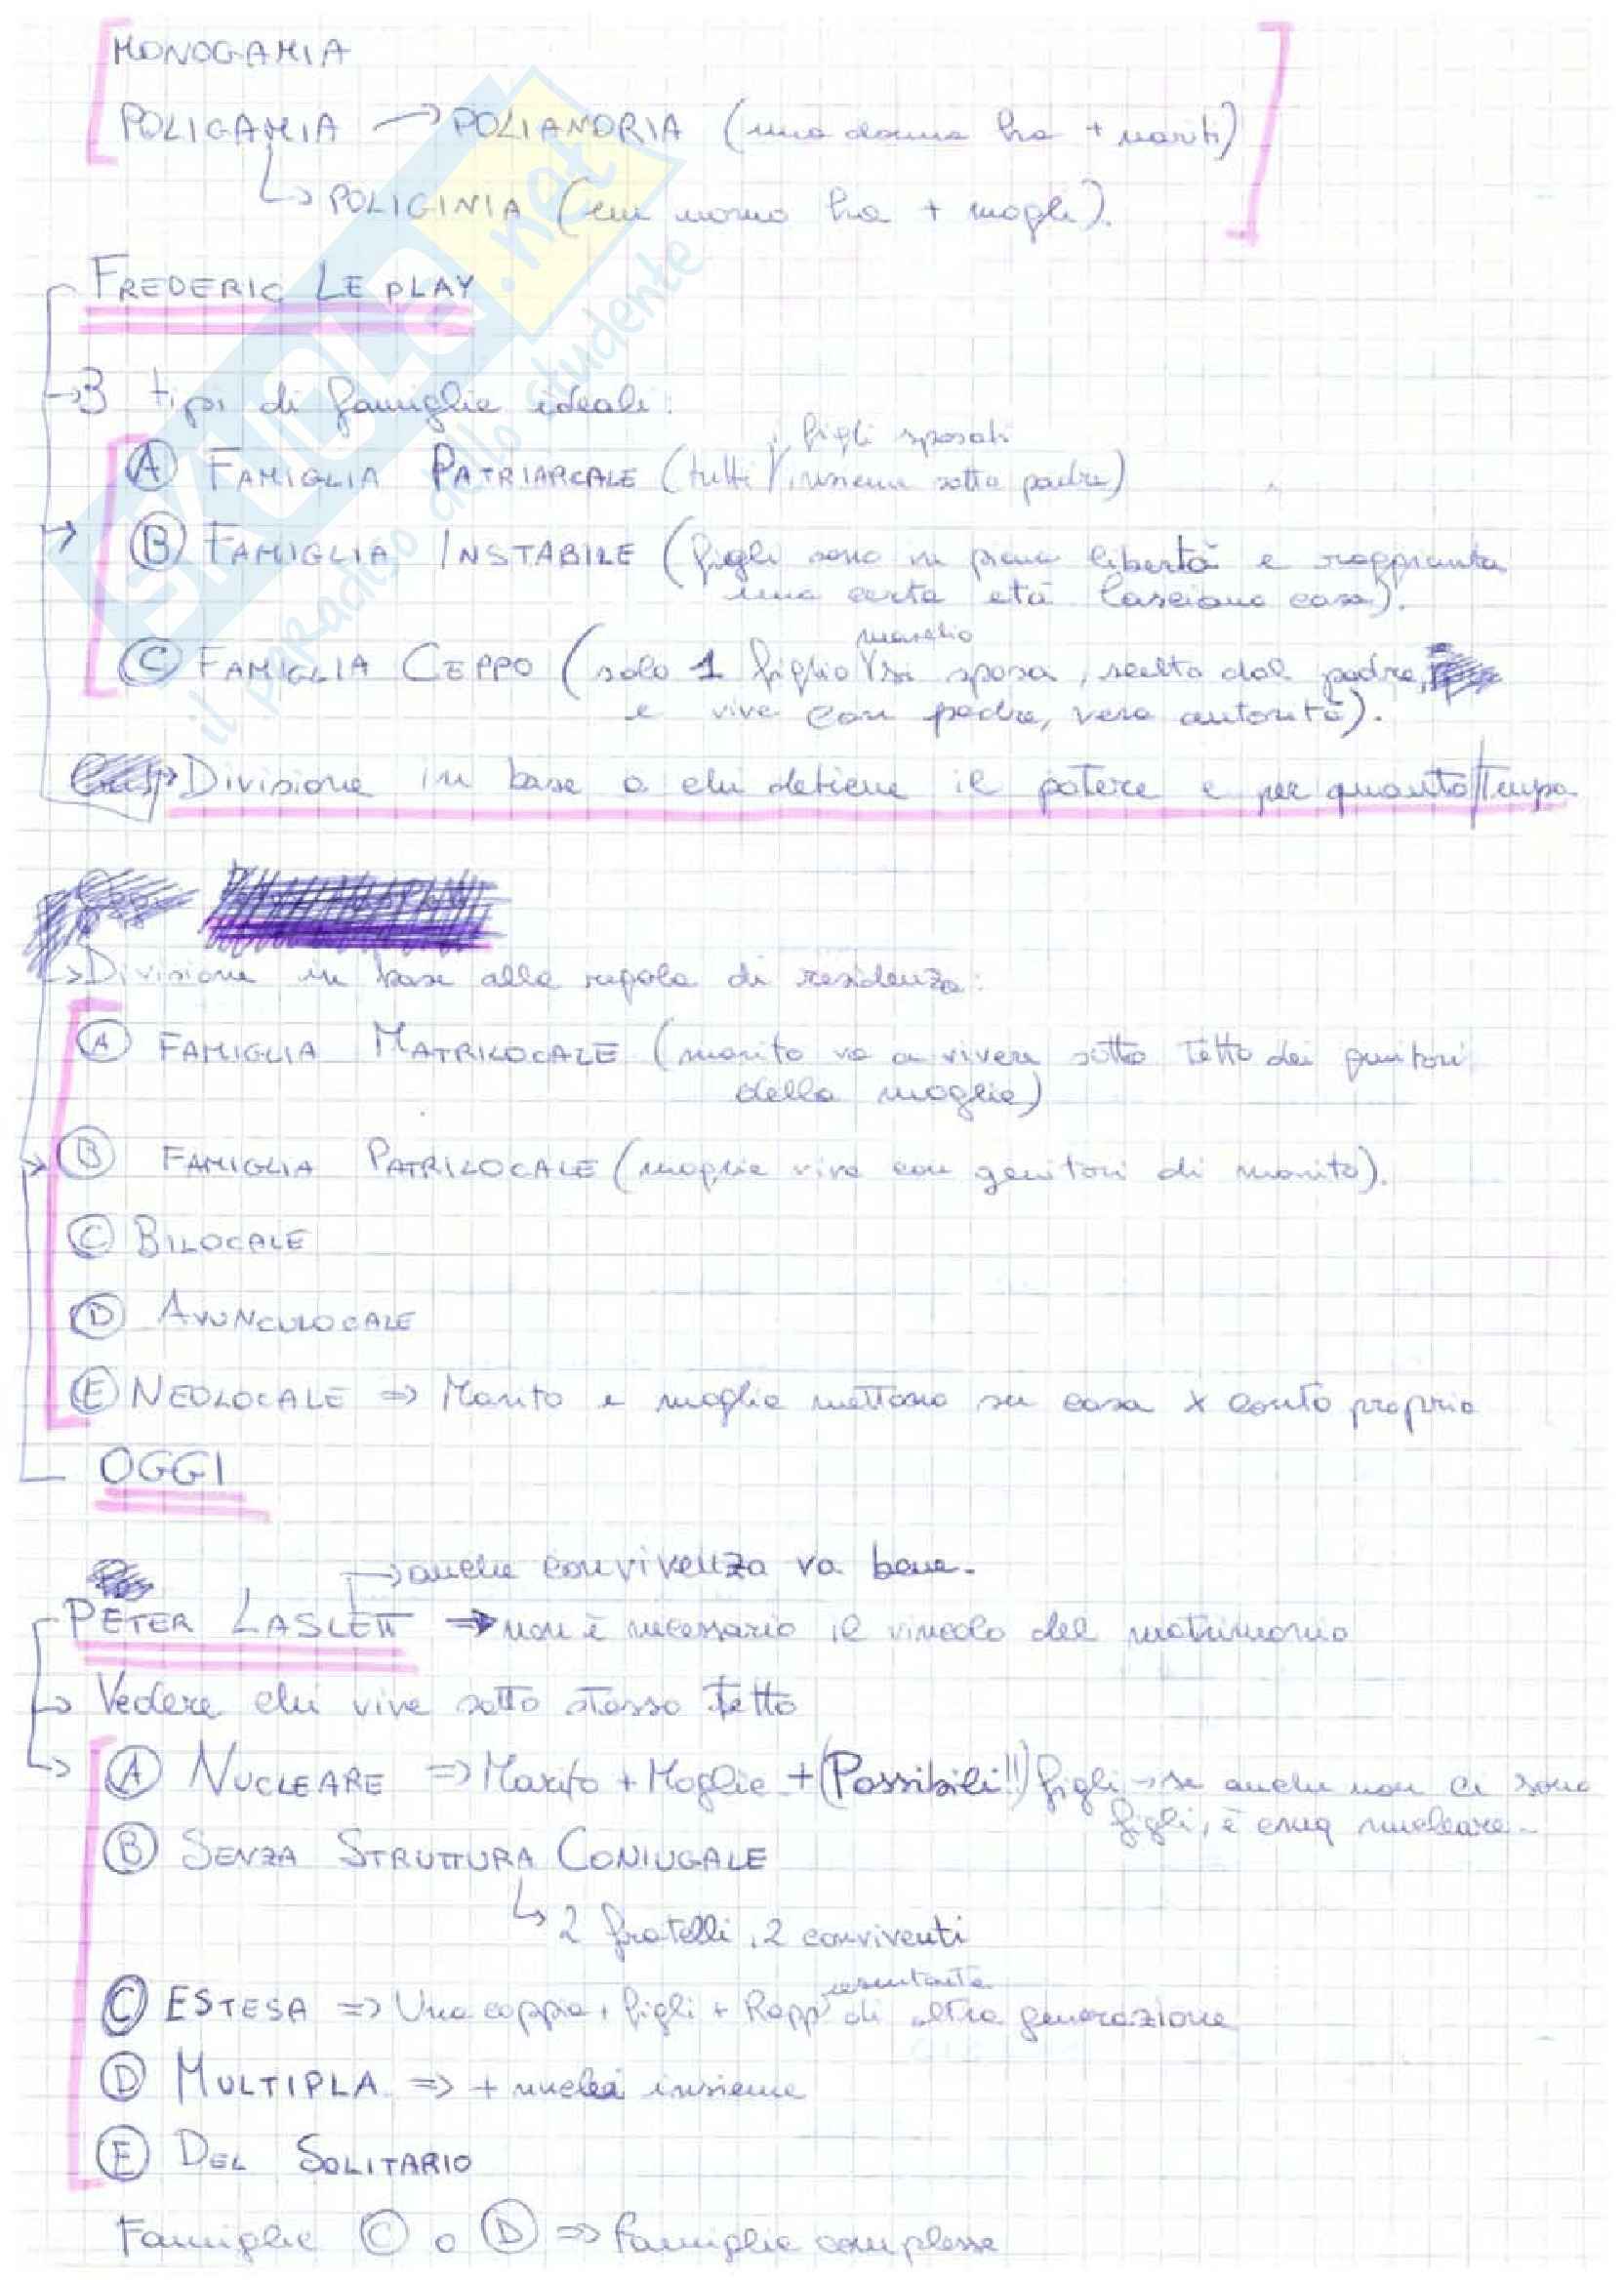 MONOGAMIA
POLIGAMIA → POLIANDRIA (una donna ha + mariti)
↳ POLIGINIA (un uomo ha + mogli).
FREDERIC LE PLAY
→ 3 tipi di famiglie ideali:
i figli sposati
Ⓐ FAMIGLIA PATRIARCALE (tutti insieme sotto padre)
→ Ⓑ FAMIGLIA INSTABILE (figli sono in piena libertà e raggiunta
una certa età lasciano casa).
maschio
Ⓒ FAMIGLIA CEPPO (solo 1 figlio si sposa, scelto dal padre,
e vive con padre, vera autorità).
→ Divisione in base a chi detiene il potere e per quanto tempo
→ Divisione in base alla regola di residenza:
Ⓐ FAMIGLIA MATRILOCALE (marito va a vivere sotto tetto dei genitori
della moglie)
→ Ⓑ FAMIGLIA PATRILOCALE (moglie vive con genitori di marito).
Ⓒ BILOCALE
Ⓓ AVUNCULOCALE
Ⓔ NEOLOCALE ⇒ Marito e moglie mettono su casa x conto proprio
OGGI
→ anche convivenza va bene.
PETER LASLETT → non è necessario il vincolo del matrimonio
→ Vedere chi vive sotto stesso tetto
→ Ⓐ NUCLEARE ⇒ Marito + Moglie + (Possibili!!) figli → se anche non ci sono
figli, è cmq nucleare.
Ⓑ SENZA STRUTTURA CONIUGALE
↳ 2 fratelli, 2 conviventi
resentante
Ⓒ ESTESA ⇒ Una coppia + figli + Rapp di altra generazione
Ⓓ MULTIPLA ⇒ + nuclei insieme
Ⓔ DEL SOLITARIO
Famiglie Ⓒ o Ⓓ ⇒ famiglie complesse
SKUOLA.net
il paradiso dello studente